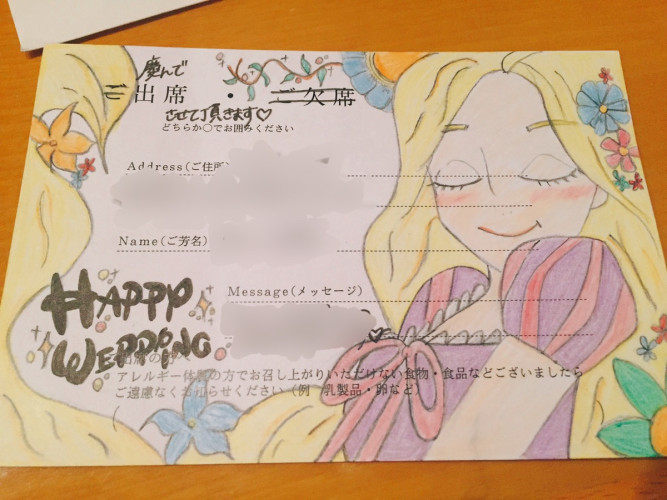 慶んで
ご出席 ・ ご欠席
させて頂きます♡
どちらか○でお囲みください
Address(ご住所)
Name(ご芳名)
Message(メッセージ)
HAPPY
WEDDING
アレルギー体質の方でお召し上がりいただけない食物・食品などございましたら
ご遠慮なくお知らせください（例　乳製品・卵など）